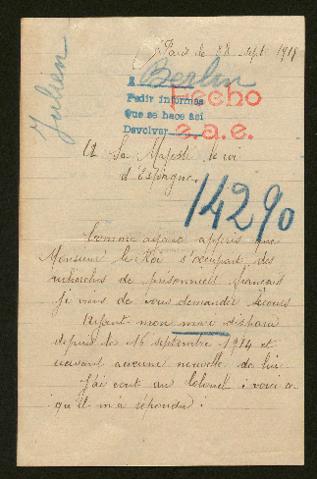 Julien
Paris le 28 Sept 1915
A Berlin
Pedir informes
Que se hace así
Devolver
Fecho
e.a.e.
A Sa Majesté le roi
d'Espagne.
14290
Comme ayant appris que
Monsieur le Roi s'occupait des
recherches de prisonniers français
Je viens de vous demander secours
Ayant mon mari disparu
depuis le 16 septembre 1914 et
n'avait aucune nouvelle de lui
J'ai écrit au Colonel : voici ce
qu'il m'a répondu :